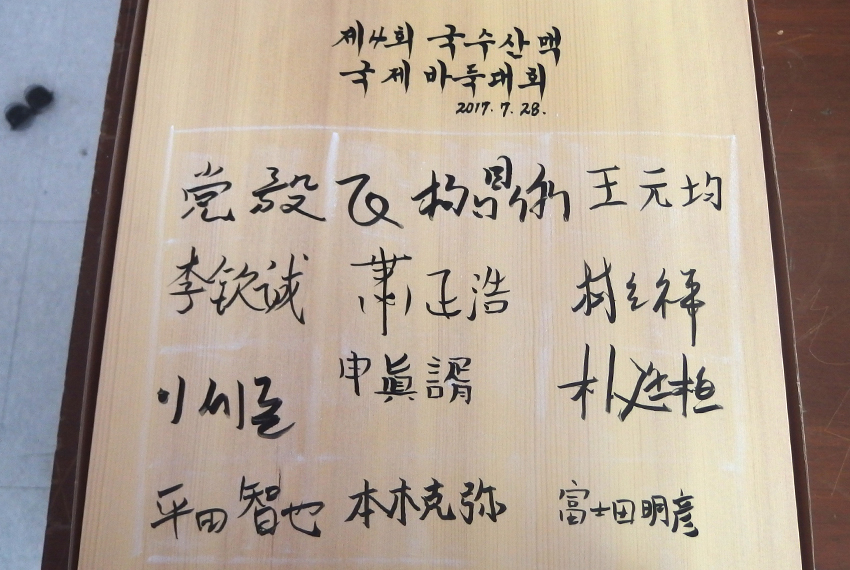 제4회 국수산맥
국제 바둑대회
2017. 7. 28.
党毅飞 杨 王元均
李钦诚 萧正浩 林立祥
이세돌 申眞諝 朴廷桓
平田智也 本木克弥 富士田明彦